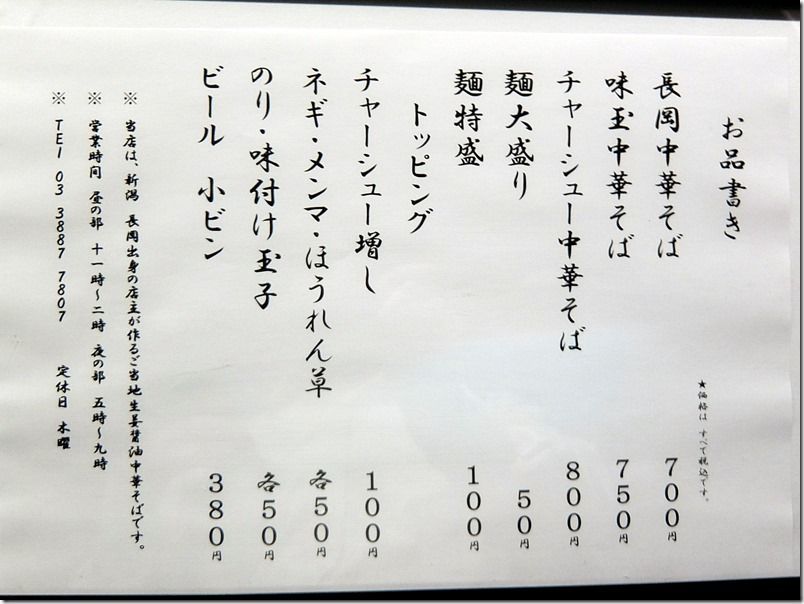 お品書き
★価格は すべて税込です。
長岡中華そば 700円
味玉中華そば 750円
チャーシュー中華そば 800円
麺大盛り 50円
麺特盛 100円
トッピング
チャーシュー増し 100円
ネギ・メンマ・ほうれん草 各50円
のり・味付け玉子 各50円
ビール 小ビン 380円
※ 当店は、新潟 長岡出身の店主が作るご当地生姜醤油中華そばです。
※ 営業時間 昼の部 十一時～二時 夜の部 五時～九時
※ TEl 03 3887 7807 定休日 木曜